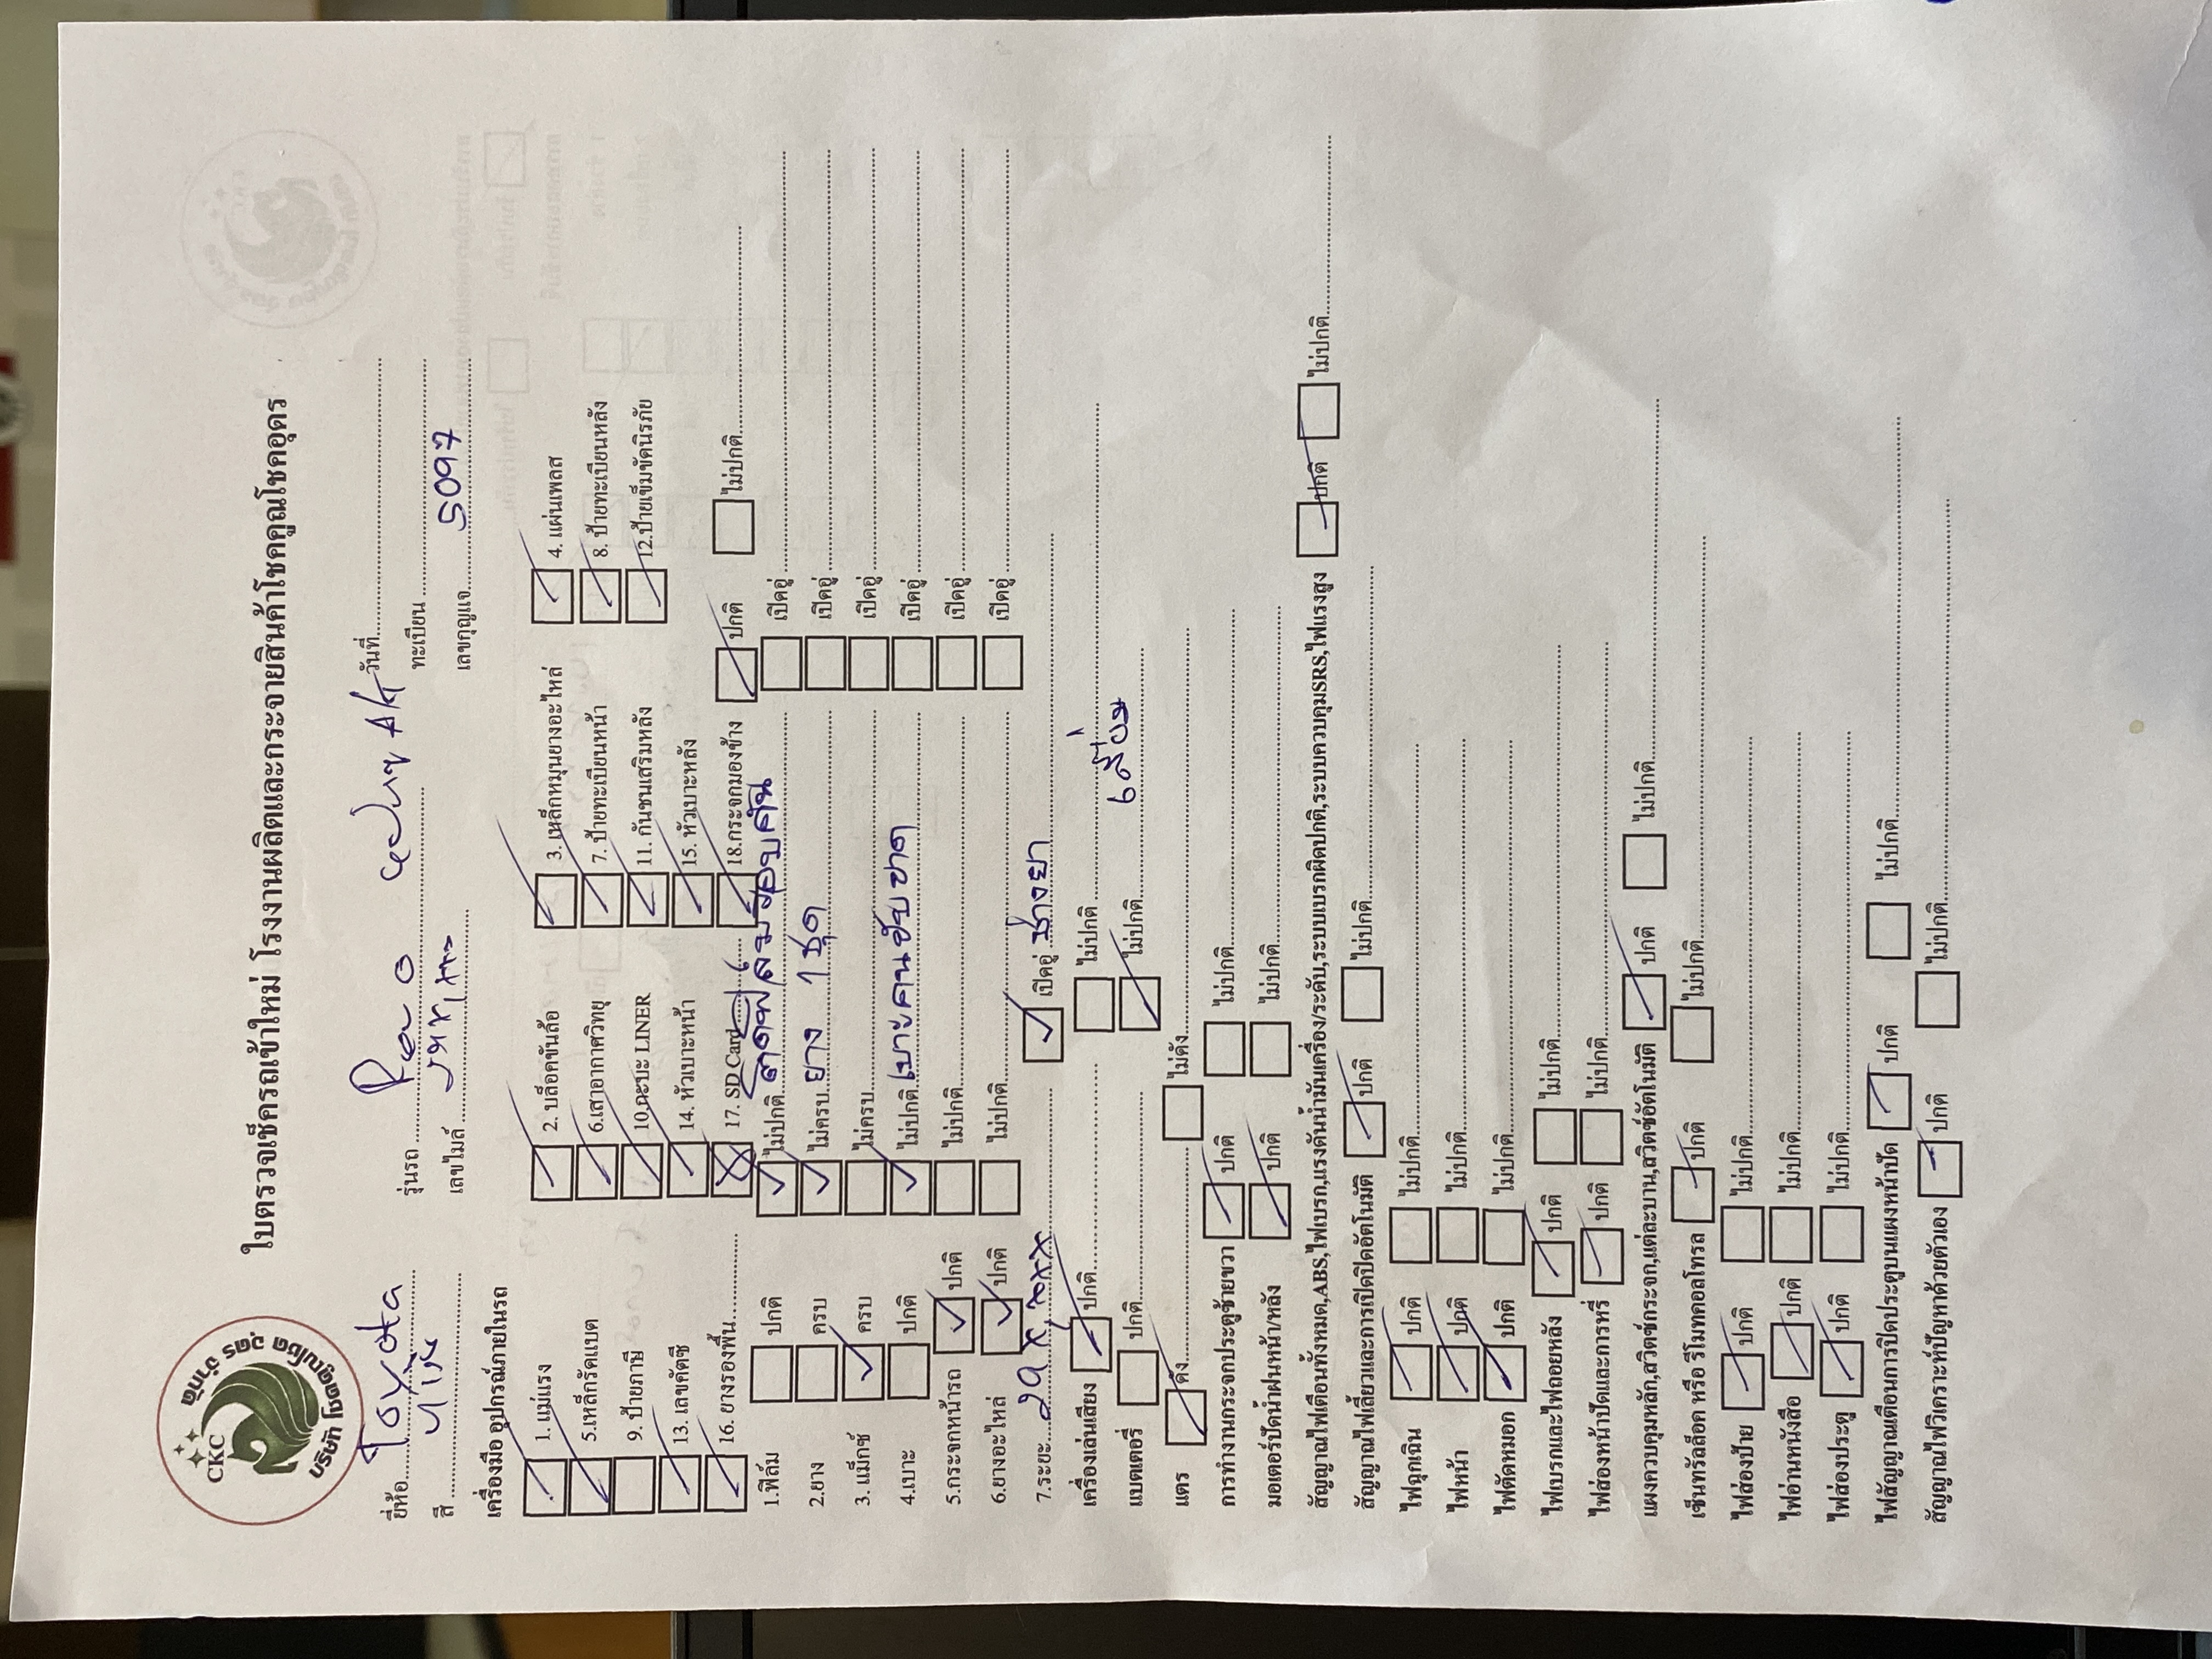 CKC
บริษัท โชคคูณโชค อุดร จำกัด
ใบตรวจเช็ครถเข้าใหม่ โรงงานผลิตและกระจายสินค้าโชคคูณโชคอุดร
ยี่ห้อ Toyota รุ่นรถ Revo วันที่
สี เลขไมล์ ทะเบียน
เลขกุญแจ 5097
เครื่องมือ อุปกรณ์ภายในรถ
1. แม่แรง 2. บล็อคขันล้อ 3. เหล็กหมุนยางอะไหล่ 4. แผ่นเพลส
5.เหล็กรัดแบต 6.เสาอากาศวิทยุ 7. ป้ายทะเบียนหน้า 8. ป้ายทะเบียนหลัง
9. ป้ายภาษี 10.กะบะ LINER 11. กันชนเสริมหลัง 12.ป้ายเข็มขัดนิรภัย
13. เลขคัตซี 14. หัวเบาะหน้า 15. หัวเบาะหลัง
16. ยางรองพื้น 17. SD Card 18.กระจกมองข้าง ปกติ ไม่ปกติ
1.ฟิล์ม ปกติ ไม่ปกติ ติดฟิล์มรอบคัน เปิดอู่
2.ยาง ครบ ไม่ครบ ยาง 1 ชุด เปิดอู่
3. แม็กซ์ ครบ ไม่ครบ เปิดอู่
4.เบาะ ปกติ ไม่ปกติ เบาะคนขับขาด เปิดอู่
5.กระจกหน้ารถ ปกติ ไม่ปกติ เปิดอู่
6.ยางอะไหล่ ปกติ ไม่ปกติ เปิดอู่
7.ระยะ 29x,xxx เปิดอู่ ช่างยา
เครื่องเล่นเสียง ปกติ ไม่ปกติ
แบตเตอรี่ ปกติ ไม่ปกติ
แตร ดัง ไม่ดัง
การทำงานกระจกประตูซ้ายขวา ปกติ ไม่ปกติ
มอเตอร์ปัดน้ำฝนหน้า/หลัง ปกติ ไม่ปกติ
สัญญาณไฟเตือนทั้งหมด,ABS,ไฟเบรก,แรงดันน้ำมันเครื่อง/ระดับ,ระบบเบรกผิดปกติ,ระบบควบคุมSRS,ไฟแรงสูง ปกติ ไม่ปกติ
สัญญาณไฟเลี้ยวและการเปิดปิดอัตโนมัติ ปกติ ไม่ปกติ
ไฟฉุกเฉิน ปกติ ไม่ปกติ
ไฟหน้า ปกติ ไม่ปกติ
ไฟตัดหมอก ปกติ ไม่ปกติ
ไฟเบรกและไฟถอยหลัง ปกติ ไม่ปกติ
ไฟส่องหน้าปัดและการหรี่ ปกติ ไม่ปกติ
แผงควบคุมหลัก,สวิตซ์กระจก,แต่ละบาน,สวิตซ์อัตโนมัติ ปกติ ไม่ปกติ
เซ็นทรัลล็อค หรือ รีโมทคอลโทรล ปกติ ไม่ปกติ
ไฟส่องป้าย ปกติ ไม่ปกติ
ไฟอ่านหนังสือ ปกติ ไม่ปกติ
ไฟส่องประตู ปกติ ไม่ปกติ
ไฟสัญญาณเตือนการปิดประตูบนแผงหน้าปัด ปกติ ไม่ปกติ
สัญญาณไฟวิเคราะห์ปัญหาด้วยตัวเอง ปกติ ไม่ปกติ